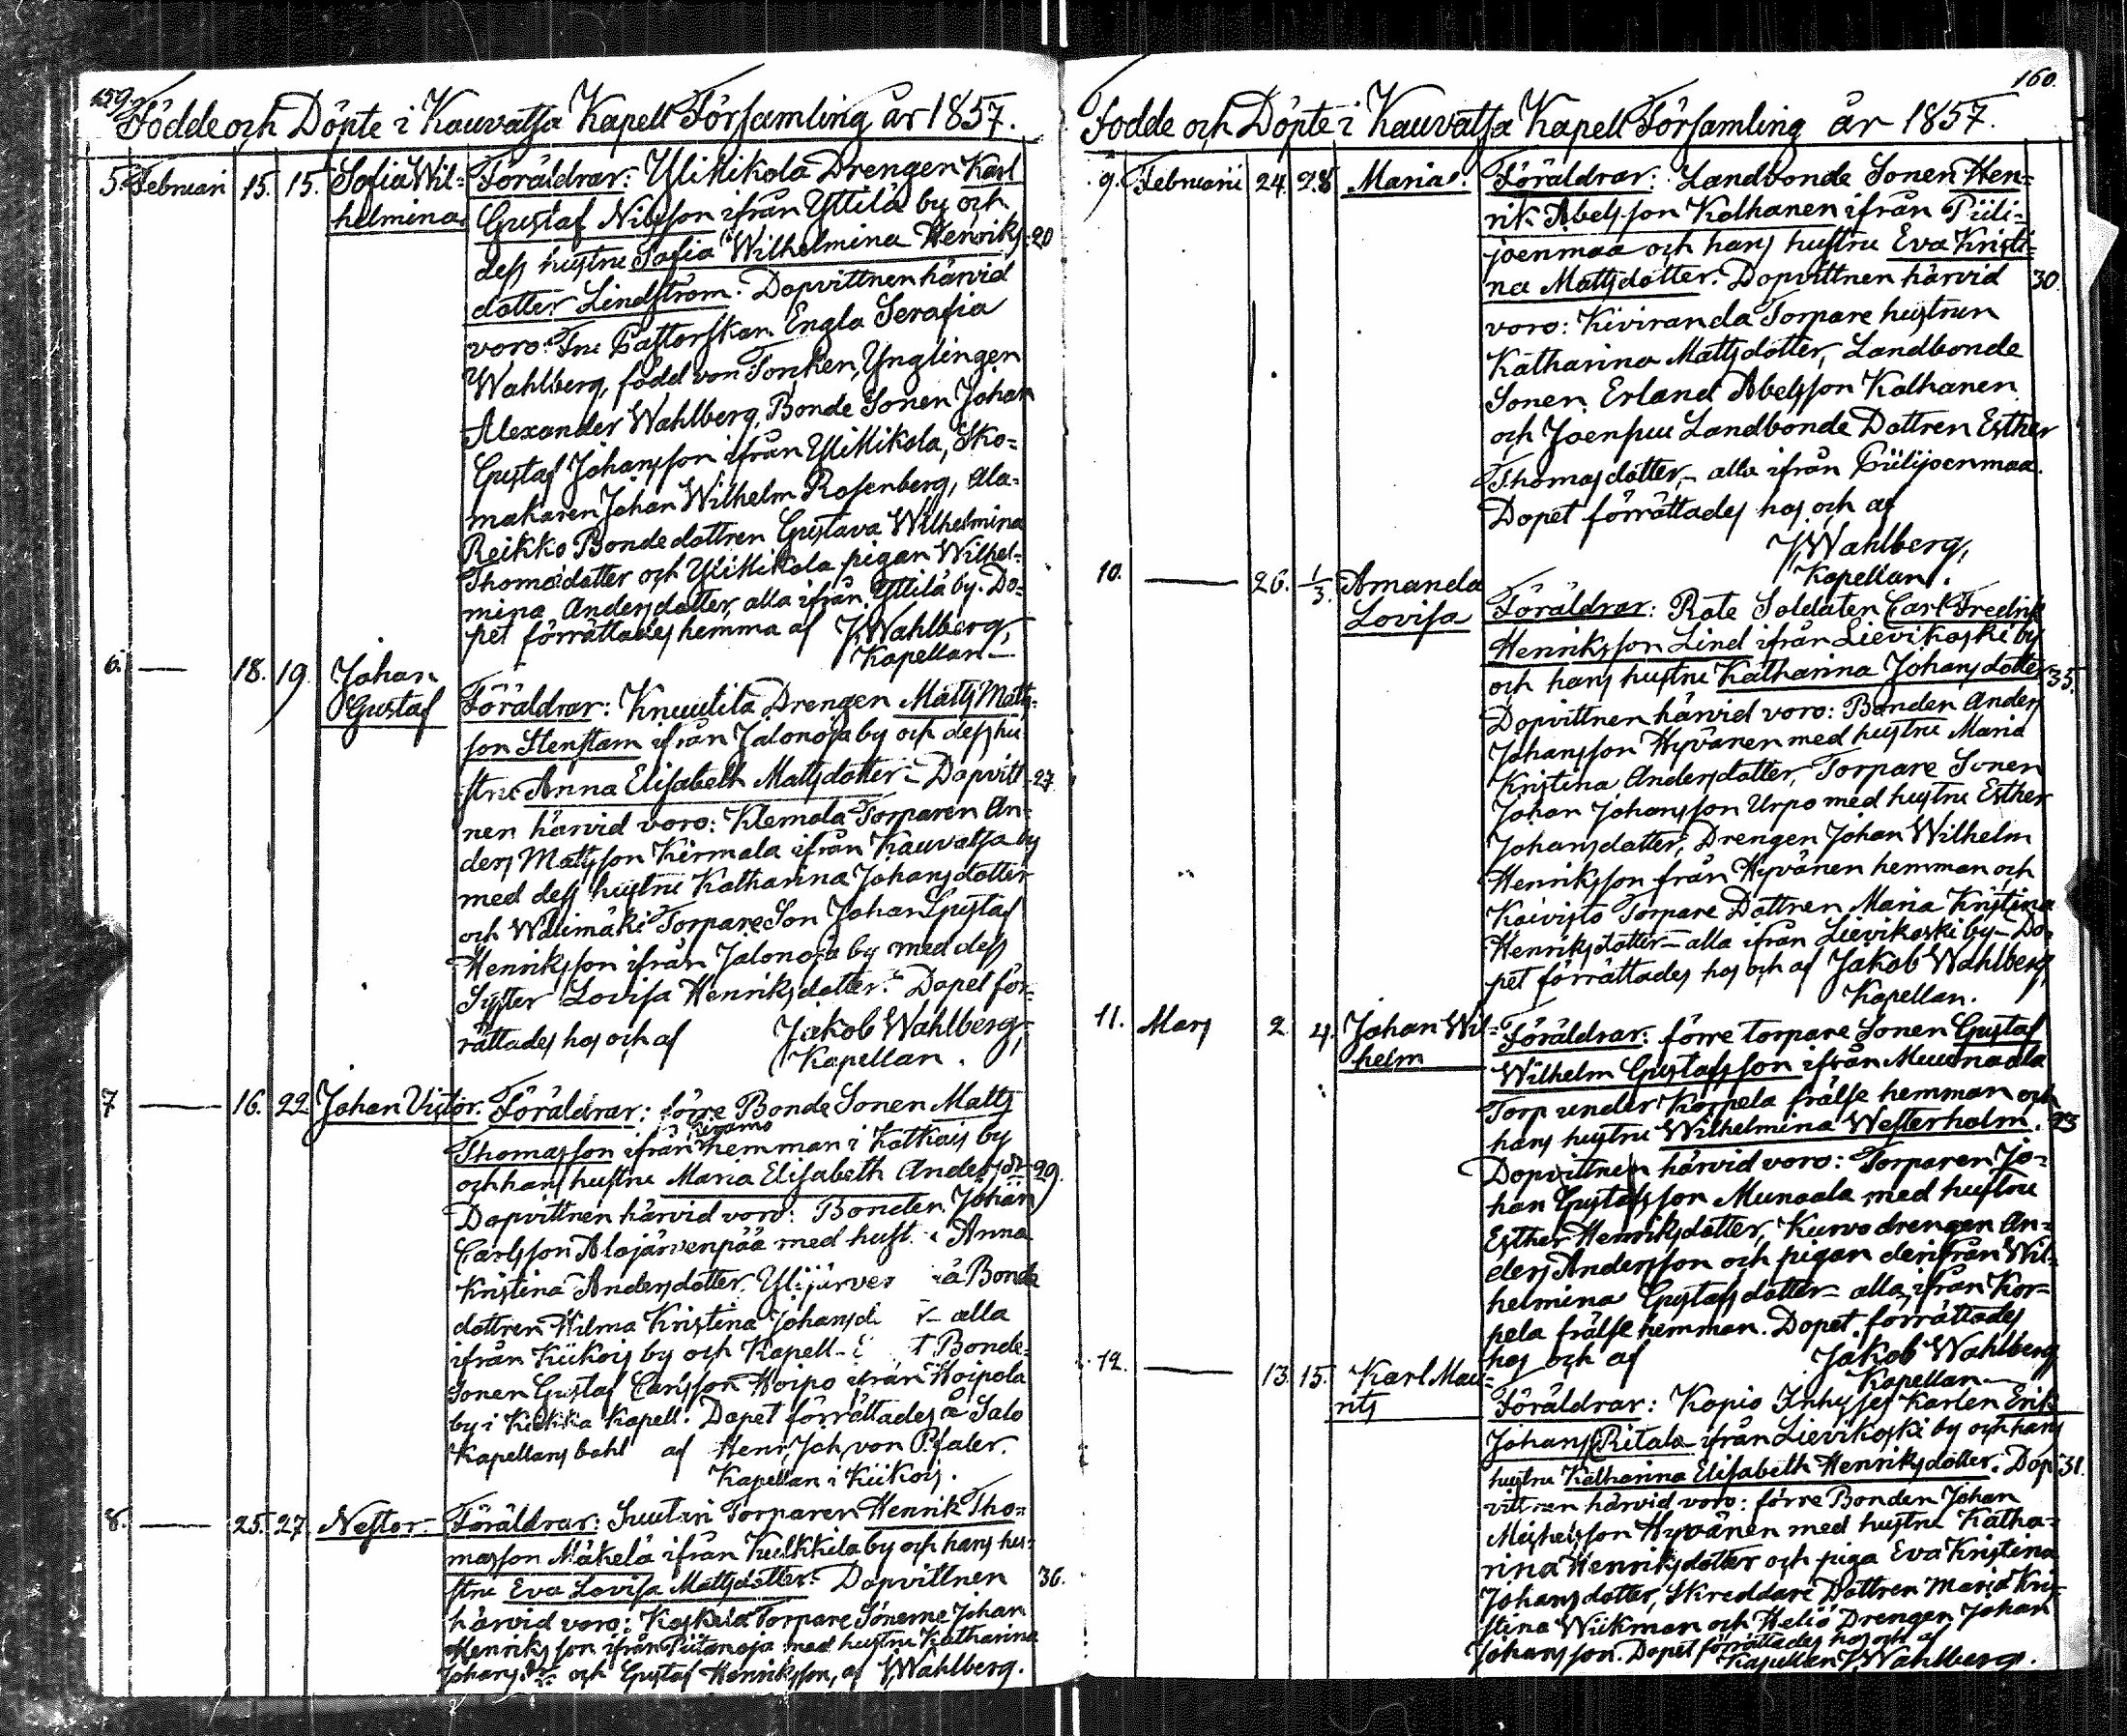 159.
Födde och Döpte i Kauvatsa Kapell Församling år 1857.
5. Februari 15. 15. Sofia Wil= Föräldrar: YliMikola Drengen Karl
helmina. Gustaf Nilsson ifrån Yttilä by och
dess hustru Sofia Wilhelmina Henriks 20
dotter Lindström. Dopvittnen härvid
voro: Fru Pastorskan Engla Serafia
Wahlberg, född von Torken, Ynglingen
Alexander Wahlberg, Bonde Sonen Johan
Gustaf Johansson ifrån YliMikola, Sko=
makaren Johan Wilhelm Rosenberg, Ala=
Reikko Bonde dottren Gustava Wilhelmina
Thomasdotter och YliMikola pigan Wilhel=
mina Andersdotter, alla ifrån Yttilä by. Do=
pet förrättades hemma af J. Wahlberg,
Kapellan
6. — 18. 19. Johan
Gustaf Föräldrar: Knuutila Drengen Matts Matts=
son Stenstam ifrån Jalonoja by och dess hu=
stru Anna Elisabeth Mattsdotter. Dopvitt 27
nen härvid voro: Klemola Torparen An=
ders Mattsson Kirmala ifrån Kauvatsa by
med dess hustru Katharina Johansdotter
och Wälimäki Torpare Son Johan Gustaf
Henriksson ifrån Jalonoja by med dess
Syster Lovisa Henriksdotter. Dopet för=
rättades hos och af Jakob Wahlberg,
Kapellan.
7 — 16. 22. Johan Victor. Föräldrar: förre Bonde Sonen Matts
Thomasson ifrån hemman i Katkais by
och hans hustru Maria Elisabeth Andersdr 29.
Dopvittnen härvid voro: Bonden Johan
Carlsson Alajärvenpää med hust. Anna
Kristina Andersdotter. Ylijärve ä Bonde
dottren Hilma Kristina Johansd alla
ifrån Kiikois by och Kapell Bonde=
Sonen Gustaf Carlsson Hoipo ifrån Hoipola
by i Kiikka Kapell. Dopet förrättades å Salo
Kapellans bohl af Henr. Joh. von Pfaler.
Kapellan i Kiikois.
8. — 25. 27 Nestor. Föräldrar: Suutari Torparen Henrik Tho=
masson Mäkelä ifrån Kulkkila by och hans hu=
stru Eva Lovisa Mattsdotter. Dopvittnen 36.
härvid voro: Koskela Torpare Sönerne Johan
Henriksson ifrån Piitonoja med hustru Katharina
Johansdr och Gustaf Henriksson, af Wahlberg.
160.
Födde och Döpte i Kauvatsa Kapell Församling år 1857.
9. Februarii 24. 28 Maria. Föräldrar: Landbonde Sonen Hen=
rik Abelsson Kalhanen ifrån Piili=
joenmaa och hans hustru Eva Kristi=
na Mattsdotter. Dopvittnen härvid 30.
voro: Kiviranda Torpare hustrun
Katharina Mattsdotter, Landbonde
Sonen Erland Abelsson Kalhanen
och Joensuu Landbonde Dottren Esther
Thomasdotter, alla ifrån Piilijoenmaa.
Dopet förrättades hos och af
J. Wahlberg,
Kapellan.
10. — 26. 1/3. Amanda
Lovisa Föräldrar: Rote Soldaten Carl Fredrik
Henriksson Lind ifrån Lievikoski by
och hans hustru Katharina Johansdotter 35.
Dopvittnen härvid voro: Bonden Anders
Johansson Hyvänen med hustru Maria
Kristina Andersdotter, Torpare Sonen
Johan Johansson Urpo med hustru Esther
Johansdotter, Drengen Johan Wilhelm
Henriksson från Hyvänen hemman och
Koivisto Torpare Dottren Maria Kristina
Henriksdotter alla ifrån Lievikoski by. Do=
pet förrättades hos och af Jakob Wahlberg,
Kapellan.
11. Mars 2. 4. Johan Wil=
helm Föräldrar: förre torpare Sonen Gustaf
Wilhelm Gustafsson ifrån Muunaala
Torp under Korpela frälse hemman och
hans hustru Wilhelmina Westerholm. 23
Dopvittnen härvid voro: Torparen Jo=
han Gustafsson Munaala med hustru
Esther Henriksdotter, Kurvo drengen An=
ders Andersson och pigan derifrån Wil=
helmina Gustafsdotter alla ifrån Kor=
pela frälse hemman. Dopet förrättades
hos och af Jakob Wahlberg
Kapellan
12. — 13. 15. Karl Mau=
rits Föräldrar: Kopio Inhyses Karlen Erik
Johanss. Ritala ifrån Lievikoski by och hans
hustru Katharina Elisabeth Henriksdotter. Dop 31.
vittnen härvid voro: förre Bonden Johan
Michelsson Hyvänen med hustru Katha=
rina Henriksdotter och piga Eva Kristina
Johansdotter, Skreddare Dottren Maria Kri=
stina Wiikman och Heliö Drengen Johan
Johansson. Dopet förrättades hos och af
Kapellan J. Wahlberg.